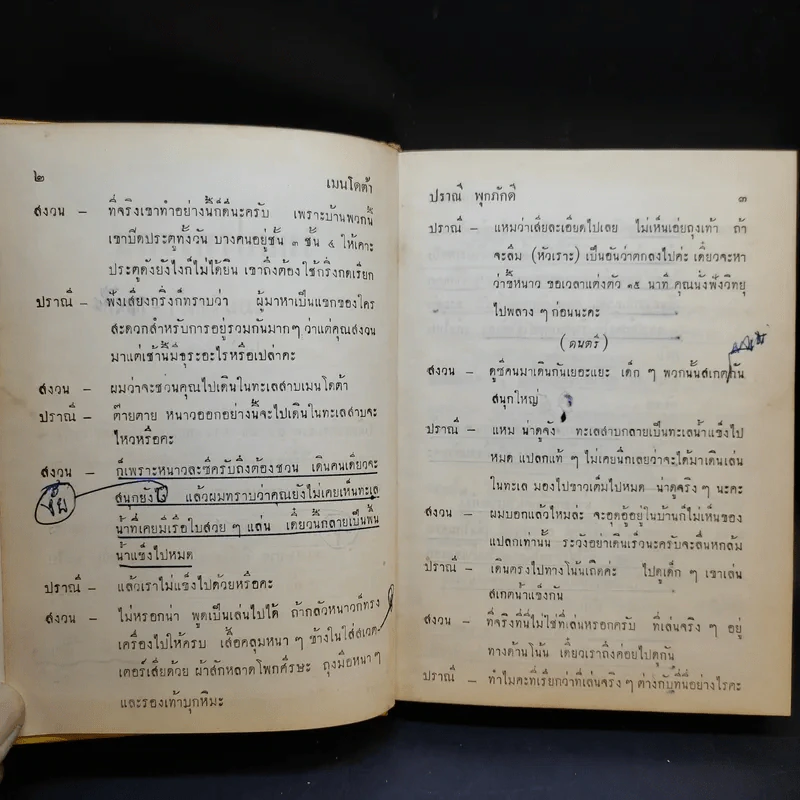 ๒ เมนโดต้า
สงวน – ที่จริงเขาทำอย่างนี้ก็ดีนะครับ เพราะบ้านพวกนี้
เขาปิดประตูทั้งวัน บางคนอยู่ชั้น ๓ ชั้น ๔ ให้เคาะ
ประตูดังยังไงก็ไม่ได้ยิน เขาถึงต้องใช้กริ่งกดเรียก
ปราณี – ฟังเสียงกริ่งก็ทราบว่า ผู้มาหาเป็นแขกของใคร
สะดวกสำหรับการอยู่รวมกันมากๆ ว่าแต่คุณสงวน
มาแต่เช้านี้มีธุระอะไรหรือเปล่าคะ
สงวน – ผมว่าจะชวนคุณไปเดินในทะเลสาบเมนโดต้า
ปราณี – ต๊ายตาย หนาวออกอย่างนี้จะไปเดินในทะเลสาบจะ
ไหวหรือคะ
สงวน – ก็เพราะหนาวละซีครับถึงต้องชวน เดินคนเดียวจะ
สนุกยังไง แล้วผมทราบว่าคุณยังไม่เคยเห็นทะเล
น้ำที่เคยมีเรือใบสวย ๆ แล่น เดี๋ยวนี้กลายเป็นพื้น
น้ำแข็งไปหมด
ปราณี – แล้วเราไม่แข็งไปด้วยหรือคะ
สงวน – ไม่หรอกน่า พูดเป็นเล่นไปได้ ถ้ากลัวหนาวก็ทรง
เครื่องไปให้ครบ เสื้อคลุมหนา ๆ ข้างในใส่สเวต-
เตอร์เสียด้วย ผ้าสักหลาดโพกศีรษะ ถุงมือหนา ๆ
และรองเท้าบุกหิมะ
ปราณี พุกภักดี ๓
ปราณี – แหมว่าเสียละเอียดไปเลย ไม่เห็นเอ่ยถุงเท้า ถ้า
จะลืม (หัวเราะ) เป็นอันว่าตกลงไปค่ะ เดี๋ยวจะหา
ว่าขี้หนาว ขอเวลาแต่งตัว ๑๕ นาที คุณนั่งฟังวิทยุ
ไปพลาง ๆ ก่อนนะคะ
(ดนตรี)
สงวน – ดูซีคนมาเดินกันเยอะแยะ เด็ก ๆ พวกนั้นสเกตกัน
สนุกใหญ่
ปราณี – แหม น่าดูจัง ทะเลสาบกลายเป็นทะเลน้ำแข็งไป
หมด แปลกแท้ ๆ ไม่เคยนึกเลยว่าจะได้มาเดินเล่น
ในทะเล มองไปขาวเต็มไปหมด น่าดูจริง ๆ นะคะ
สงวน – ผมบอกแล้วไหมล่ะ จะอุดอู้อยู่ในบ้านก็ไม่เห็นของ
แปลกเท่านั้น ระวังอย่าเดินเร็วนะครับจะลื่นหกล้ม
ปราณี – เดินตรงไปทางโน้นเถิดค่ะ ไปดูเด็ก ๆ เขาเล่น
สเกตน้ำแข็งกัน
สงวน – ที่จริงที่นี่ไม่ใช่ที่เล่นหรอกครับ ที่เล่นจริง ๆ อยู่
ทางด้านโน้น เดี๋ยวเราถึงค่อยไปดูกัน
ปราณี – ทำไมคะที่เรียกว่าที่เล่นจริง ๆ ต่างกับที่นี่อย่างไรคะ